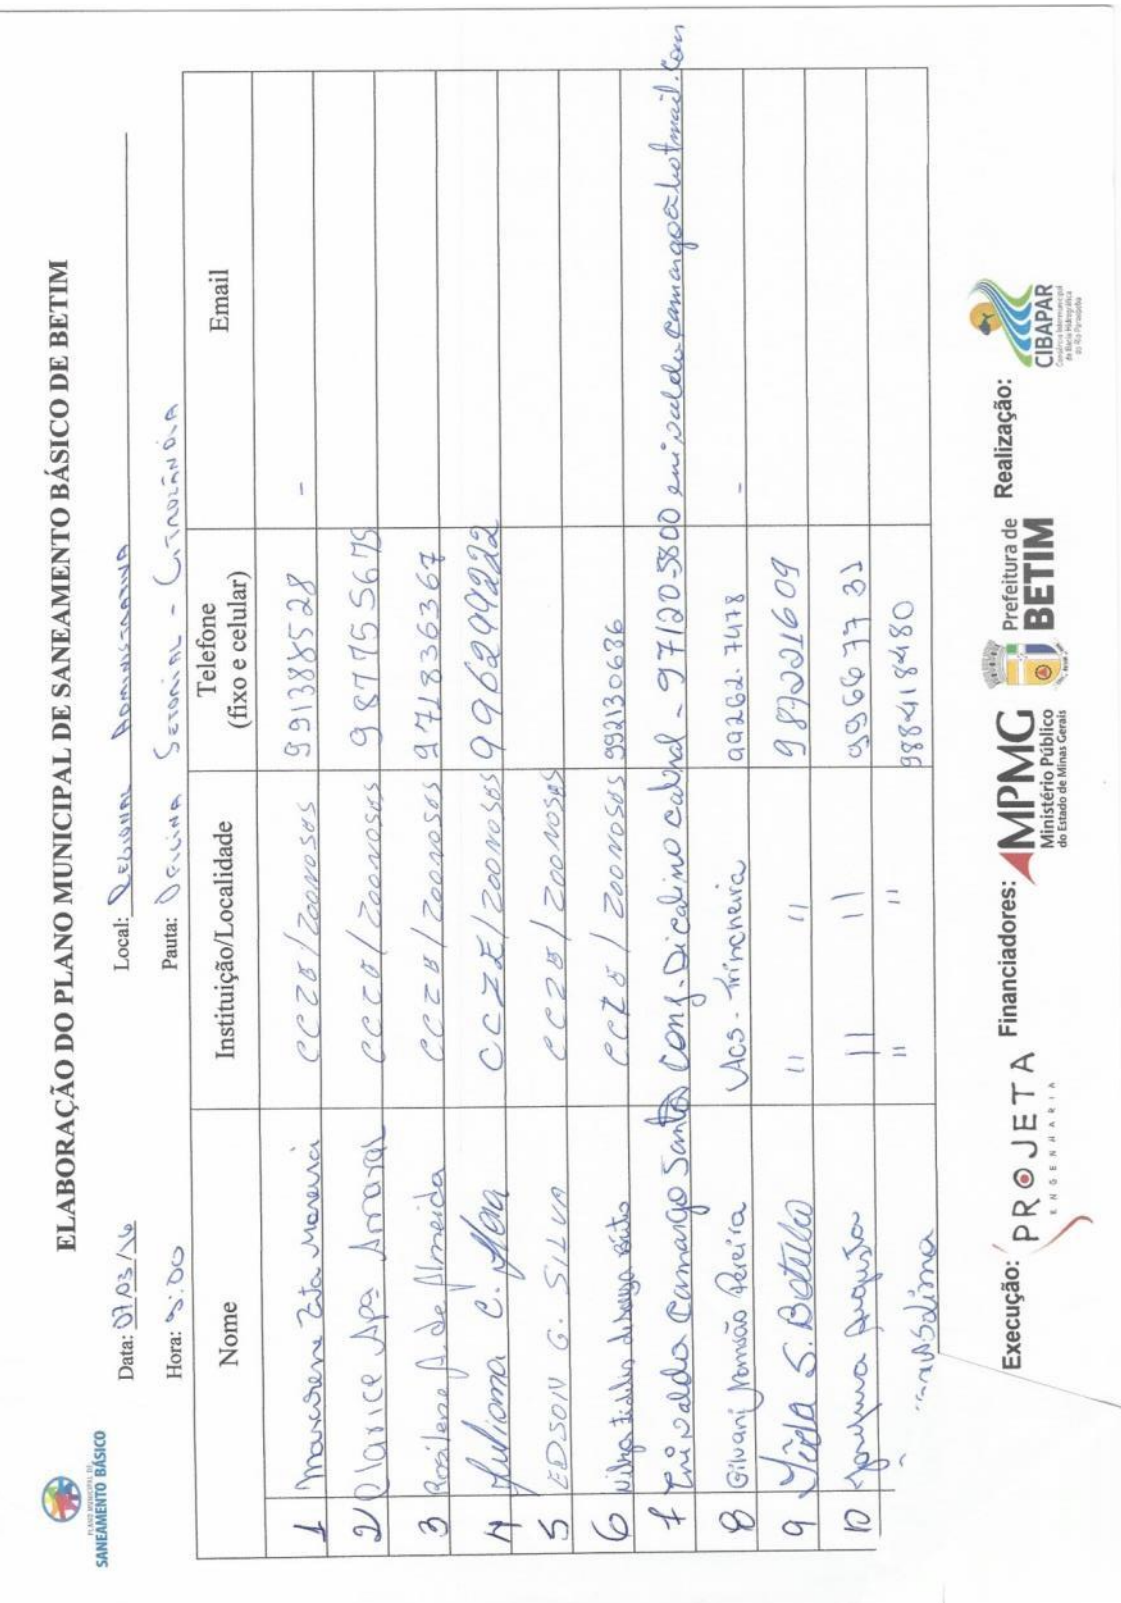 PLANO MUNICIPAL DE
SANEAMENTO BÁSICO
ELABORAÇÃO DO PLANO MUNICIPAL DE SANEAMENTO BÁSICO DE BETIM
Data: 07/03/16 Local: REGIONAL ADMINISTRATIVA
Hora: 9:00 Pauta: OFICINA SETORIAL - CITROLÂNDIA
Nome Instituição/Localidade Telefone (fixo e celular) Email
1 Zita Moreira CCZE/Zoonoses 991388528 -
2 Clarice Apª Amaral CCZE/Zoonoses 987755675
3 Rosilene A. de Almeida CCZE/Zoonoses 971836367
4 Juliana C. CCZE/Zoonoses 996299222
5 EDSON G. SILVA CCZE/Zoonoses
6 CCZE/Zoonoses 992130636
7 Enivaldo Camargo Santos Cong. Dicalino Cabral - 97120-5800 enivaldo.camargo@hotmail.com
8 Gilvani Romão Pereira UCS - Trincheira 99262-7478 -
9 S. Botelho " " 987221609
10 Augusta " " 996677 31
" " 988418480
Execução: PROJETA ENGENHARIA Financiadores: MPMG Ministério Público do Estado de Minas Gerais Prefeitura de BETIM Realização: CIBAPAR
Consórcio Intermunicipal
da Bacia Hidrográfica
do Rio Paraopeba